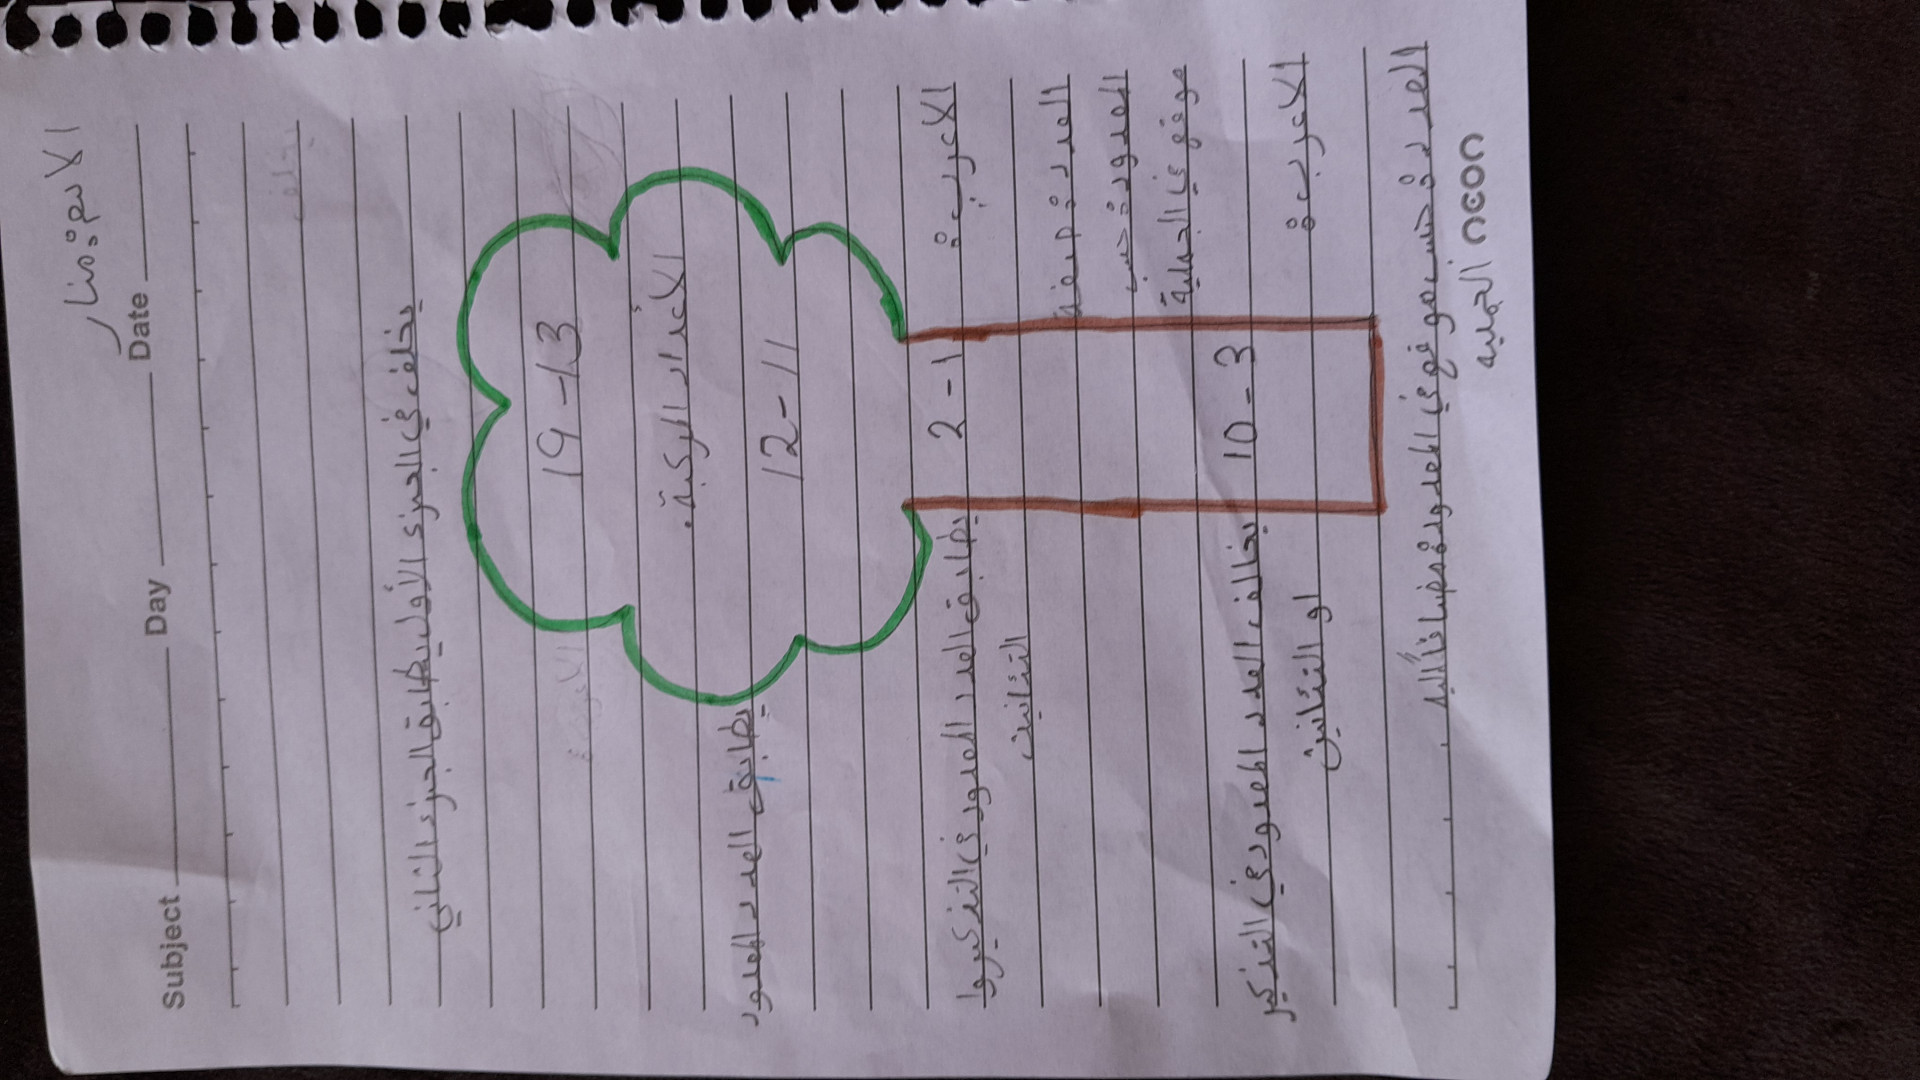 الاسم: منار
Subject Day Date
يخالف في الجزء الأول يطابق الجزء الثاني
19-13
الأعداد المركبة.
12-11
يطابق العدد المعدود
2-1
يطابق العدد المعدود في التذكير وا
التأنيث
الاعراب:
العدد: صفة
المعدود: حسب
موقعه في الجملة
10-3
يخالف العدد المعدود في التذكير
او التأنيث
الاعراب:
العدد: حسب موقعه في
المعدود: مضاف
الجملة
neon